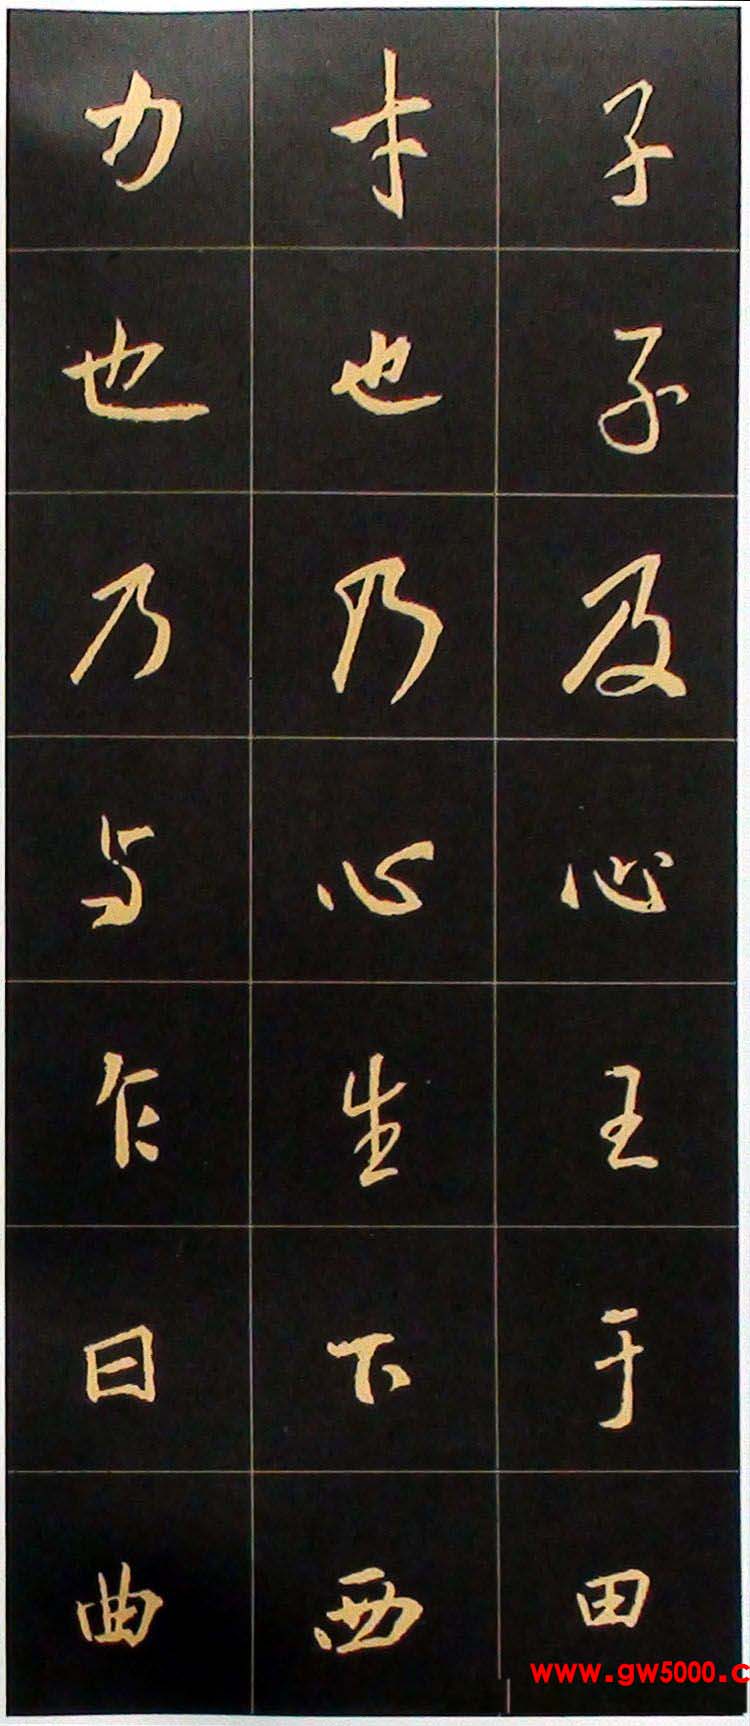 子子及心王于田
木也乃心生下西
力也乃与乍日曲
www.gw5000.c